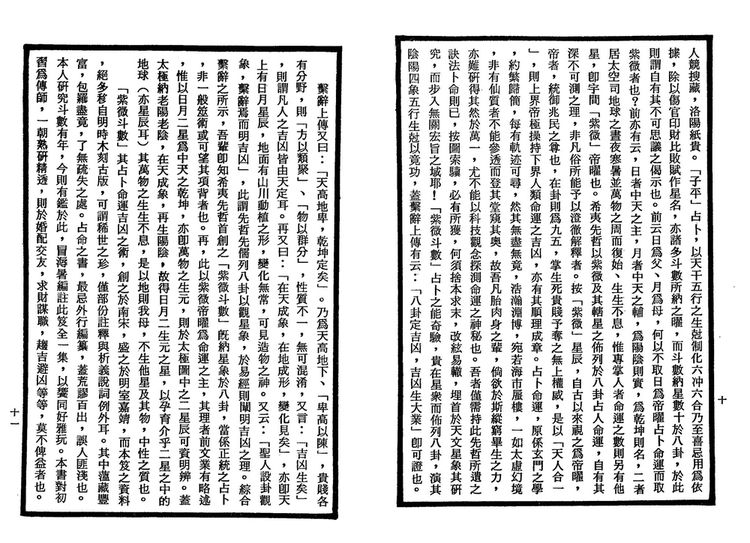 人競搜藏，洛陽紙貴。「子平」占卜，以天干五行之生尅制化六冲六合乃至喜忌用爲依
據，除以傷官印財比敗賦作星名，亦諸多斗數所納之曜，而斗數納星數十於八卦，於此
則謂自有其不可思議之偈示也。前云日爲父、月爲母，何以不取日爲帝曜占卜命運而取
紫微者也？前亦有云，日者中天之主，月者中天之輔，爲陰陽則實，爲乾坤則名，二者
居太空司地球之晝夜寒暑並萬物之周而復始、生生不息，惟專掌人者命運之數則另有他
星，卽宇間「紫微」帝曜也。希夷先哲以紫微及其轄星之佈列於八卦占人命運，自有其
深不可測之理，非凡俗所能予以澄徹解釋者。按「紫微」星辰，自古以來寵之爲帝曜，
帝者，統御兆民之尊也，在卦則爲九五，掌生死貴賤予奪之無上權威，是以「天人合一
」，則上界帝極操持下界人類命運之吉凶，亦有其順理成章。占卜命運，原係玄門之學
，約繁歸簡，每有軌迹可尋，然其無盡無竟，浩瀚淵博，宛若海市蜃樓，一如太虛幻境
，非有仙質者不能參透而登其堂窺其奧，故吾凡胎肉身之輩，倘欲於斯縱窮畢生之力，
亦難研得其然於萬一，尤不能以科技觀念探測命運之神秘也。吾者僅需持此先哲所遺之
訣法卜命則已，按圖索驥，必有所獲，何須捨本求末，改絃易轍，埋首於天文星象其研
究，而步入無關宏旨之域耶！「紫微斗數」占卜之能奇驗，貴在星衆而佈列八卦，演其
陰陽四象五行生尅以竟功，蓋繫辭上傳有云：「八卦定吉凶，吉凶生大業」卽可證也。
十
繫辭上傳又曰：「天高地卑，乾坤定矣」。乃爲天高地下、「卑高以陳」，貴賤各
有分野，則「方以類聚」、「物以群分」，性質不一，無可混淆，又言：「吉凶生矣」
，則謂凡人之吉凶皆由天定耳。再又曰：「在天成象，在地成形，變化見矣」，亦卽天
上有日月星辰，地面有山川動植之形，變化無常，可見造物之神。又云：「聖人設卦觀
象，繫辭焉而明吉凶」，此謂先哲先儒列八卦以觀星象，於易經則闡明吉凶之理。綜合
繫辭之所示，吾輩卽知希夷先哲首創之「紫微斗數」旣納星象於八卦，當係正統之占卜
，非一般筮術或可望其項背者也。再，此以紫微帝曜爲命運之主，其理者前文業有略述
，惟以日月二星爲中天之乾坤，亦卽萬物之生元，則於太極圖中之二星辰可資明辨。蓋
太極納老陽老陰，在天成象，再生陽陰，故得日月二生元之星，以孕育介乎二星之中的
地球（亦星辰耳）其萬物之生生不息，是以地則我母，不生他星及其物，中性之質也。
「紫微斗數」其占卜命運吉凶之術，創之於南宋，盛之於明室嘉靖，而本笈之資料
，絕多移自明時木刻古版，可謂稀世之珍，僅部份註釋與析義説詞例外耳。其中蘊藏豐
富，包羅盡竟，了無疏失之處。占命之書，最忌外行編纂，蓋荒謬百出，誤人匪淺也。
本人研究斗數有年，今則有鑑於此，冒海暑編註此笈全一集，以饗同好雅玩。本書對初
習爲傳師，一朝熟研精透，則於婚配交友，求財謀職，趨吉避凶等等，莫不俾益者也。
十一